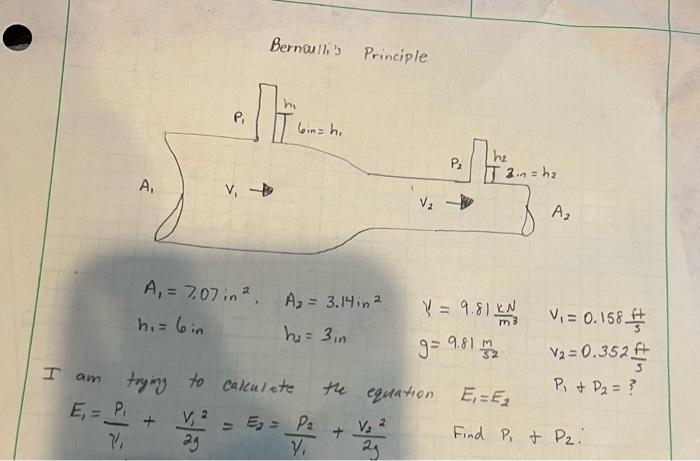 Bernoulli's Principle
P₁ h₁ 6in = h₁
P₂ h₂ 3in = h₂
A₁ V₁ V₂ A₂
A₁ = 7.07in². A₂ = 3.14in² γ = 9.81 kN/m³ V₁ = 0.158 ft/s
h₁ = 6in h₂ = 3in g = 9.81 m/s² V₂ = 0.352 ft/s
P₁ + P₂ = ?
I am trying to calculate the equation E₁ = E₂
E₁ = P₁/γ₁ + V₁²/2g = E₂ = P₂/γ₁ + V₂²/2g Find P₁ + P₂: